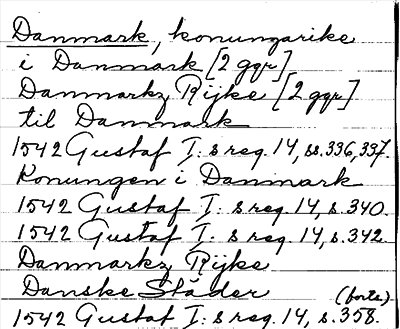 Danmark, konungarike
i Danmark [2 ggr]
Danmarkz Rijke [2 ggr]
til Danmark
1542 Gustaf I: s reg. 14, ss. 336, 337.
Konungen i Danmark
1542 Gustaf I: s reg. 14, s. 340.
1542 Gustaf I: s reg. 14, s. 342.
Danmarkz Rijke
Danske Städer (forts.)
1542 Gustaf I: s reg. 14, s. 358.